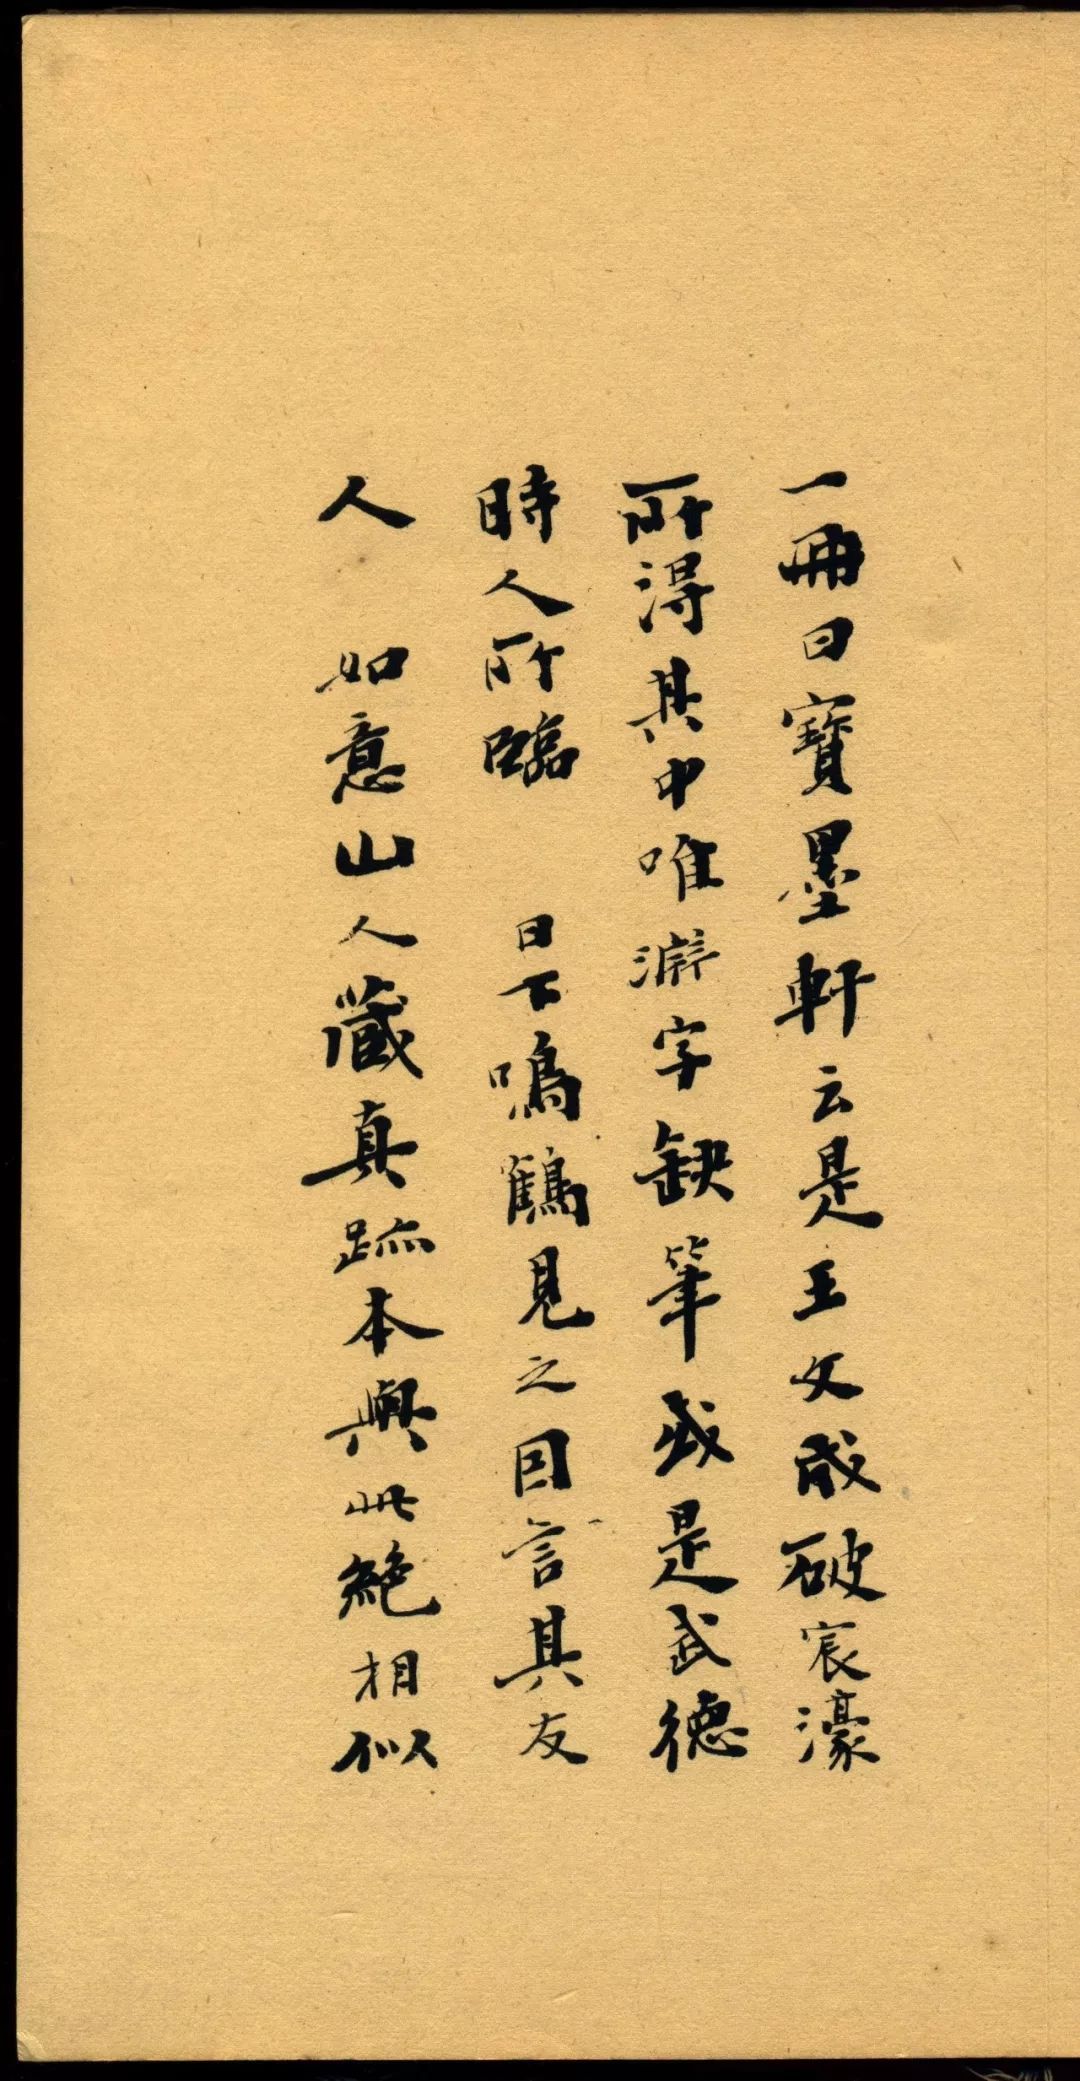 一冊曰寶墨軒云是王文成破宸濠
所淂其中唯淵字缺筆或是武德
時人所臨　日下鳴鶴見之因言其友
人　如意山人藏真跡本與此絶相似